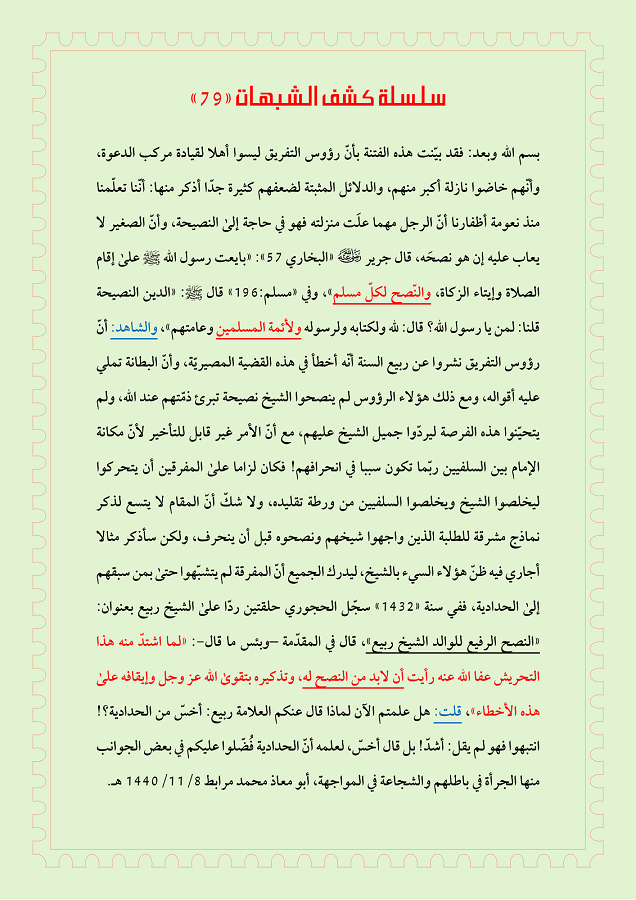 سلسلة كشف الشبهات «79»
بسم الله وبعد: فقد بيّنت هذه الفتنة بأنّ رؤوس التفريق ليسوا أهلا لقيادة مركب الدعوة،
وأنّهم خاضوا نازلة أكبر منهم، والدلائل المثبتة لضعفهم كثيرة جدّا أذكر منها: أنّنا تعلّمنا
منذ نعومة أظفارنا أنّ الرجل مهما علَت منزلته فهو في حاجة إلىٰ النصيحة، وأنّ الصغير لا
يعاب عليه إن هو نصحَه، قال جرير رضي الله عنه «البخاري 57»: «بايعت رسول الله ﷺ علىٰ إقام
الصلاة وإيتاء الزكاة، والنّصح لكلّ مسلم»، وفي «مسلم:196» قال ﷺ: «الدين النصيحة
قلنا: لمن يا رسول الله؟ قال: لله ولكتابه ولرسوله ولأئمة المسلمين وعامتهم»، والشاهد: أنّ
رؤوس التفريق نشروا عن ربيع السنة أنّه أخطأ في هذه القضية المصيريّة، وأنّ البطانة تملي
عليه أقواله، ومع ذلك هؤلاء الرؤوس لم ينصحوا الشيخ نصيحة تبرئ ذمّتهم عند الله، ولم
يتحيّنوا هذه الفرصة ليردّوا جميل الشيخ عليهم، مع أنّ الأمر غير قابل للتأخير لأنّ مكانة
الإمام بين السلفيين ربّما تكون سببا في انحرافهم! فكان لزاما علىٰ المفرقين أن يتحركوا
ليخلصوا الشيخ ويخلصوا السلفيين من ورطة تقليده، ولا شكّ أنّ المقام لا يتسع لذكر
نماذج مشرقة للطلبة الذين واجهوا شيخهم ونصحوه قبل أن ينحرف، ولكن سأذكر مثالا
أجاري فيه ظنّ هؤلاء السيء بالشيخ، ليدرك الجميع أنّ المفرقة لم يتشبّهوا حتىٰ بمن سبقهم
إلىٰ الحدادية، ففي سنة «1432» سجّل الحجوري حلقتين ردّا علىٰ الشيخ ربيع بعنوان:
«النصح الرفيع للوالد الشيخ ربيع»، قال في المقدّمة –وبئس ما قال–: «لما اشتدّ منه هذا
التحريش عفا الله عنه رأيت أن لابد من النصح له، وتذكيره بتقوىٰ الله عز وجل وإيقافه علىٰ
هذه الأخطاء»، قلت: هل علمتم الآن لماذا قال عنكم العلامة ربيع: أخسّ من الحدادية؟!
انتبهوا فهو لم يقل: أشدّ! بل قال أخسّ، لعلمه أنّ الحدادية فُضّلوا عليكم في بعض الجوانب
منها الجرأة في باطلهم والشجاعة في المواجهة، أبو معاذ محمد مرابط 8/ 11/ 1440 هـ.